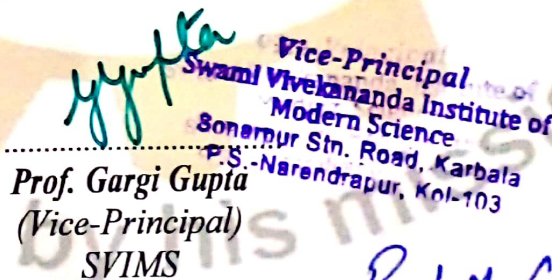 GGupta
Vice-Principal
Swami Vivekananda Institute of
Modern Science
Sonarpur Stn. Road, Karbala
P.S.-Narendrapur, Kol-103
Prof. Gargi Gupta
(Vice-Principal)
SVIMS
by his